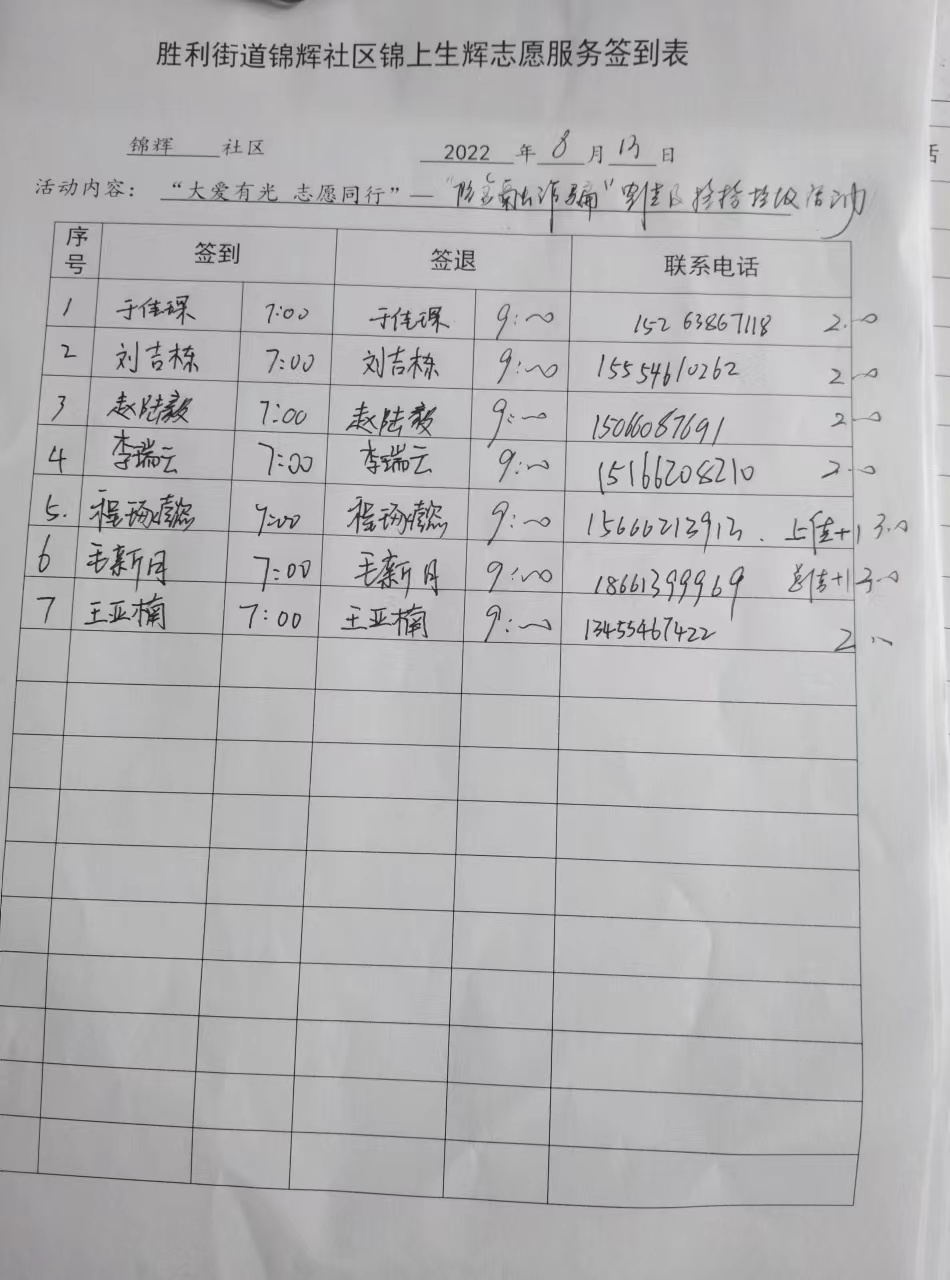 胜利街道锦辉社区锦上生辉志愿服务签到表
锦辉 社区 2022 年 8 月 13 日
活动内容：“大爱有光 志愿同行”—“防金融诈骗”宣传及捡拾垃圾活动
序号 签到 签退 联系电话
1 于佳琛 7:00 于佳琛 9:00 15263867118 2.0
2 刘吉栋 7:00 刘吉栋 9:00 15554610262 2.0
3 赵陆毅 7:00 赵陆毅 9:00 15066087691 2.0
4 李瑞云 7:00 李瑞云 9:00 15166208210 2.0
5. 程 7:00 程 9:00 15666213913. 上传+1 3.0
6 毛新月 7:00 毛新月 9:00 18661399969 +1 3.0
7 王亚楠 7:00 王亚楠 9:00 13455467422 2.0
话